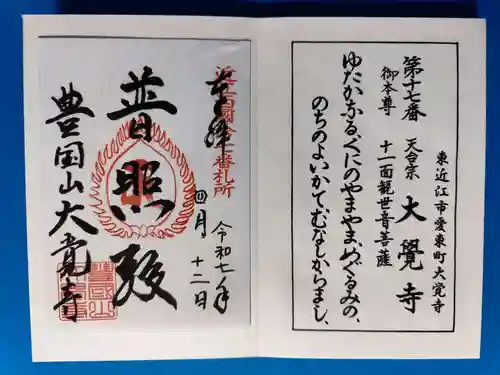 東近江市愛東町大覚寺
第十七番 天台宗 大覺寺
御本尊 十一面観世音菩薩
ゆたかなる、くにのやまやま、めぐるみの、
のちのよいかで、むなしからまし、
近江西国第十七番札所
奉拝
令和七年
四月十二日
普照殿
豊国山大覚寺